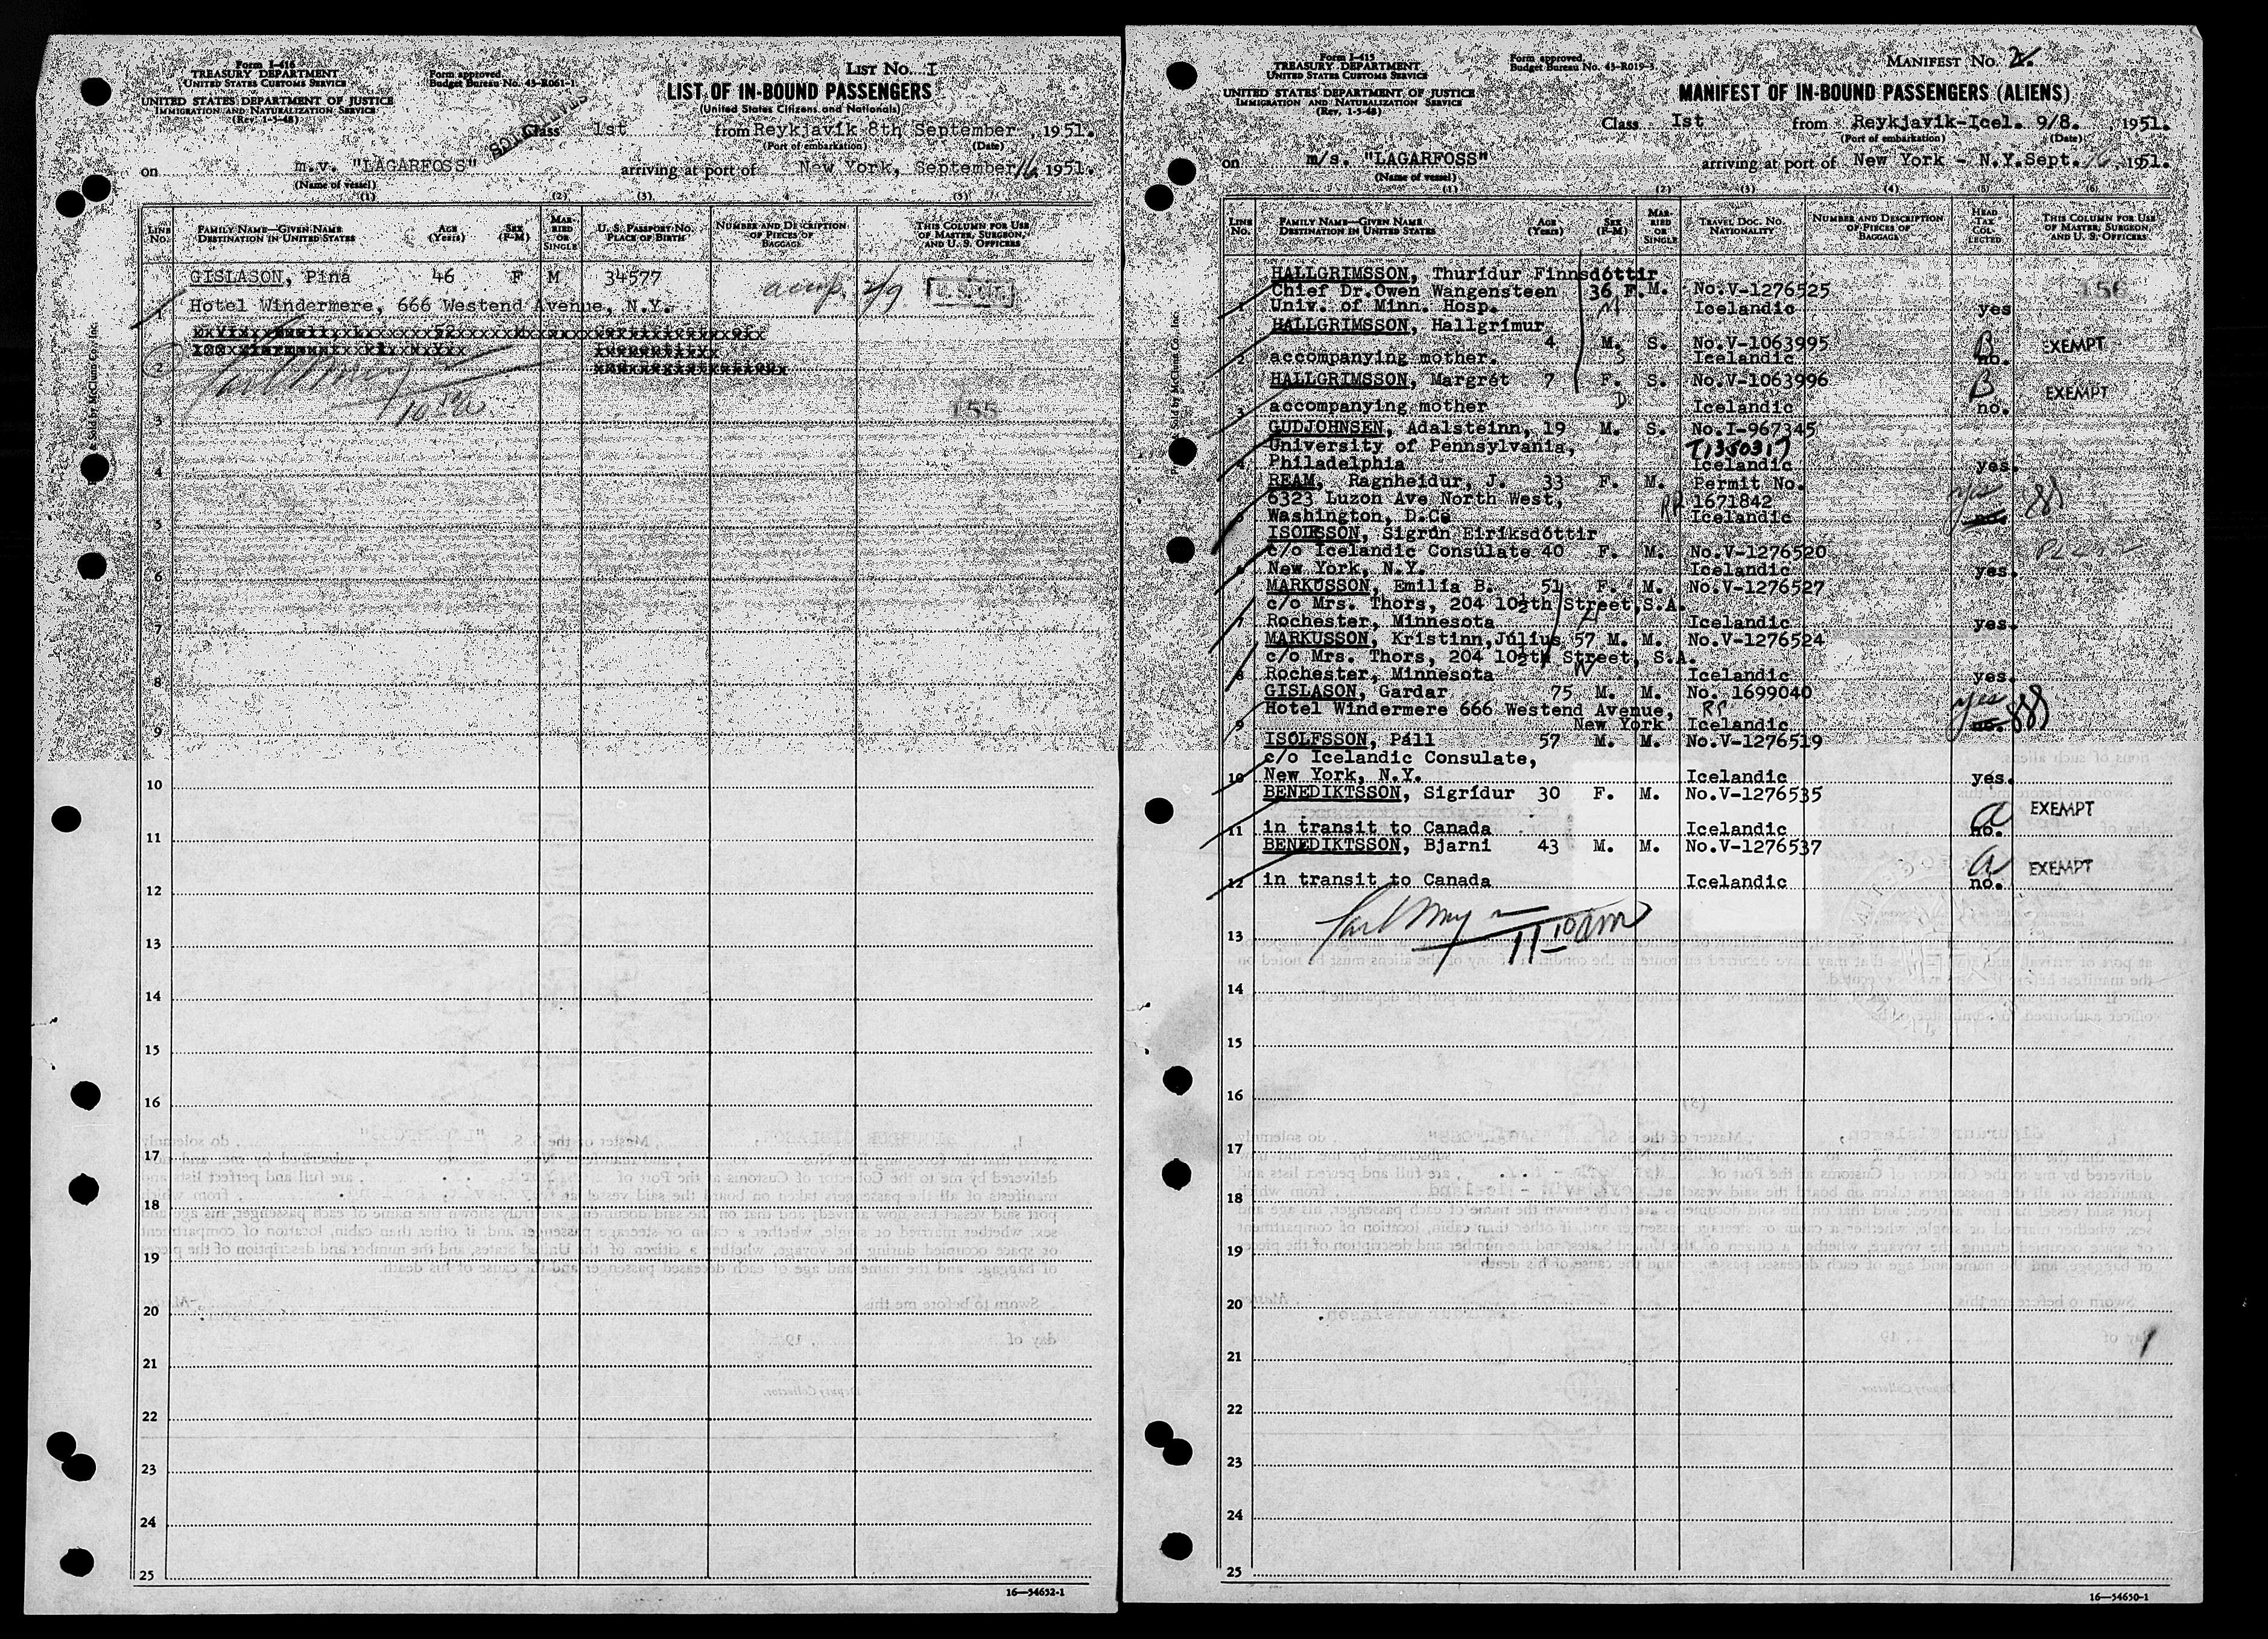 Form I-416
TREASURY DEPARTMENT
UNITED STATES CUSTOMS SERVICE
UNITED STATES DEPARTMENT OF JUSTICE
IMMIGRATION AND NATURALIZATION SERVICE
(Rev. 1-3-48)
Form approved.
Budget Bureau No. 43-R061-1
LIST No. I
LIST OF IN-BOUND PASSENGERS
(United States Citizens and Nationals)
Class 1st from Reykjavik 8th September, 1951.
(Port of embarkation) (Date)
on m.v. "LAGARFOSS" arriving at port of New York, September 16, 1951.
(Name of vessel)
(1) (2) (3) 4 (5)
LINE No. FAMILY NAME—GIVEN NAME DESTINATION IN UNITED STATES AGE (Years) SEX (F-M) MARRIED OR SINGLE U. S. PASSPORT NO. PLACE OF BIRTH NUMBER AND DESCRIPTION OF PIECES OF BAGGAGE THIS COLUMN FOR USE OF MASTER, SURGEON, AND U. S. OFFICERS
GISLASON, Pina 46 F M 34577
1 Hotel Windermere, 666 Westend Avenue, N.Y.
2
155
3
4
5
6
7
8
9
10
11
12
13
14
15
16
17
18
19
20
21
22
23
24
25
16—54652-1
Form I-415
TREASURY DEPARTMENT
UNITED STATES CUSTOMS SERVICE
UNITED STATES DEPARTMENT OF JUSTICE
IMMIGRATION AND NATURALIZATION SERVICE
(Rev. 1-3-48)
Form approved.
Budget Bureau No. 43-R019-3.
MANIFEST No. 2.
MANIFEST OF IN-BOUND PASSENGERS (ALIENS)
Class Ist from Reykjavik-Icel. 9/8., 1951.
(Port of embarkation) (Date)
on m/s. "LAGARFOSS" arriving at port of New York - N.Y. Sept. 16, 1951.
(Name of vessel)
(1) (2) (3) (4) (5) (6)
LINE No. FAMILY NAME—GIVEN NAME DESTINATION IN UNITED STATES AGE (Years) SEX (F-M) MARRIED OR SINGLE TRAVEL DOC. NO. NATIONALITY NUMBER AND DESCRIPTION OF PIECES OF BAGGAGE HEAD TAX COLLECTED THIS COLUMN FOR USE OF MASTER, SURGEON, AND U. S. OFFICERS
HALLGRIMSSON, Thurídur Finnsdóttir
Chief Dr.Owen Wangensteen 36 F. M. No.V-1276525 156
1 Univ. of Minn. Hosp. M Icelandic yes
HALLGRIMSSON, Hallgrímur
4 M. S. No.V-1063995 B EXEMPT
2 accompanying mother. S Icelandic no.
HALLGRIMSSON, Margrét 7 F. S. No.V-1063996 B EXEMPT
3 accompanying mother D Icelandic no.
GUDJOHNSEN, Adalsteinn, 19 M. S. No.I-967345
University of Pennsylvania, T1350317
4 Philadelphia Icelandic yes.
REAM, Ragnheidur, J. 33 F. M. Permit No.
6323 Luzon Ave North West, RP 1671842 yes
5 Washington, D.C. Icelandic
ISOLFSSON, Sigrún Eiríksdóttir
c/o Icelandic Consulate 40 F. M. No.V-1276520
6 New York, N.Y. Icelandic yes.
MARKUSSON, Emilía B. 51 F. M. No.V-1276527
c/o Mrs. Thors, 204 10½th Street,S.A.
7 Rochester, Minnesota Icelandic yes.
MARKUSSON, Kristinn,Júlíus 57 M. M. No.V-1276524
c/o Mrs. Thors, 204 10½th Street, S.A.
8 Rochester, Minnesota W Icelandic yes.
GISLASON, Gardar 75 M. M. No. 1699040
Hotel Windermere 666 Westend Avenue, RP yes
9 New York Icelandic no.
ISOLFSSON, Páll 57 M. M. No.V-1276519
c/o Icelandic Consulate,
10 New York, N.Y. Icelandic yes.
BENEDIKTSSON, Sigrídur 30 F. M. No.V-1276535
a EXEMPT
11 in transit to Canada Icelandic no.
BENEDIKTSSON, Bjarni 43 M. M. No.V-1276537
a EXEMPT
12 in transit to Canada Icelandic no.
11 10 am
13
14
15
16
17
18
19
20
21
22
23
24
25
16—54650-1